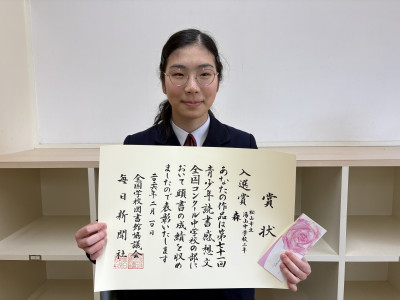 賞状
入選賞
松山市立
湯山中学校三年
森
あなたの作品は第七十一回
青少年読書感想文
全国コンクール中学校の部に
おいて頭書の成績を収め
ましたので表彰いたします
二〇二六年二月一〇日
全国学校図書館協議会
毎日新聞社